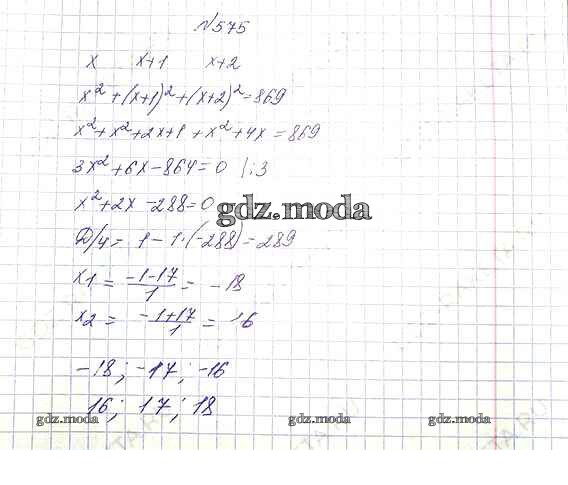 №575
x x+1 x+2
x²+(x+1)²+(x+2)²=869
x²+x²+2x+1+x²+4x=869
3x²+6x-864=0 |:3
x²+2x-288=0
gdz.moda
D/4= 1-1·(-288)=289
x1 = -1-17/1 = -18
x2 = -1+17/1 = 16
-18; -17; -16
16; 17; 18
gdz.moda gdz.moda gdz.moda